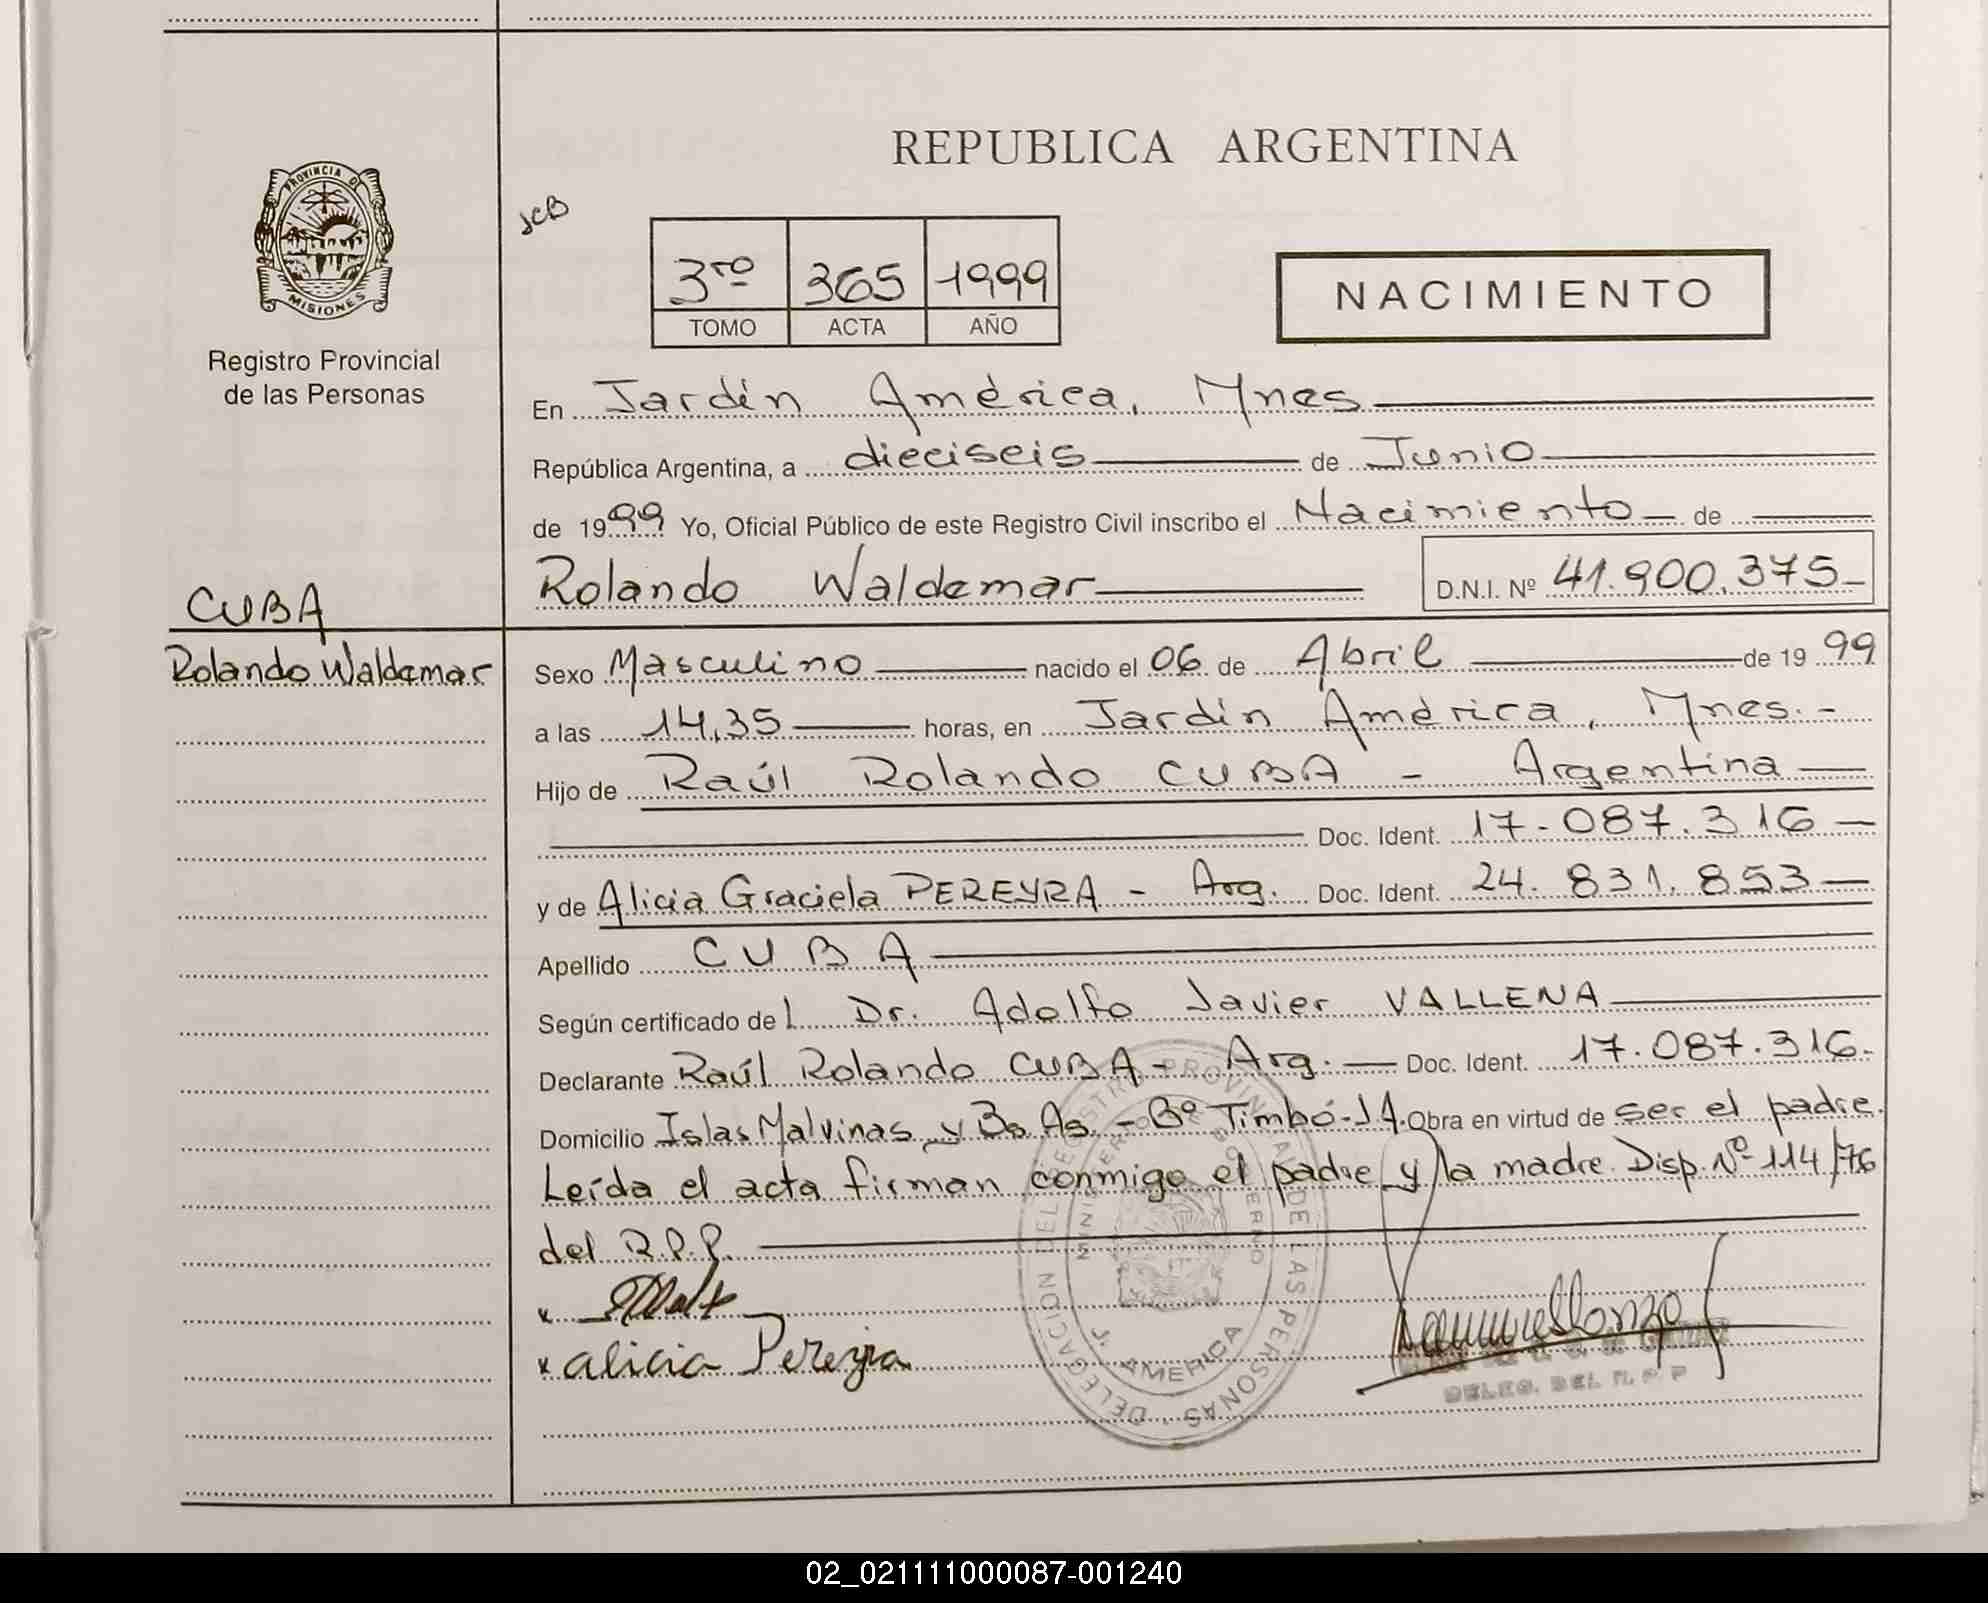 REPUBLICA ARGENTINA
PROVINCIA DE
MISIONES
Registro Provincial
de las Personas
JCB
3ro 365 1999
TOMO ACTA AÑO
NACIMIENTO
En Jardín América, Mnes
República Argentina, a dieciseis de Junio
de 1999 Yo, Oficial Público de este Registro Civil inscribo el Nacimiento de
Rolando Waldemar D.N.I. Nº 41.900.375
CUBA
Rolando Waldemar
Sexo Masculino nacido el 06 de Abril de 1999
a las 14,35 horas, en Jardín América, Mnes.-
Hijo de Raúl Rolando CUBA - Argentina
Doc. Ident. 17.087.316
y de Alicia Graciela PEREYRA - Arg. Doc. Ident. 24.831.853
Apellido CUBA
Según certificado del Dr. Adolfo Javier VALLENA
Declarante Raúl Rolando CUBA - Arg. Doc. Ident. 17.087.316.
Domicilio Islas Malvinas y Bs As. - Bº Timbó-J A. Obra en virtud de ser el padre.
Leída el acta firman conmigo el padre y la madre. Disp. Nº 114/76
del R.P.P.
x
x alicia Pereyra
DELEGACION DEL REGISTRO PROVINCIAL DE LAS PERSONAS
MINISTERIO DE GOBIERNO
J. AMERICA
DELEG. DEL R. P P
02_021111000087-001240